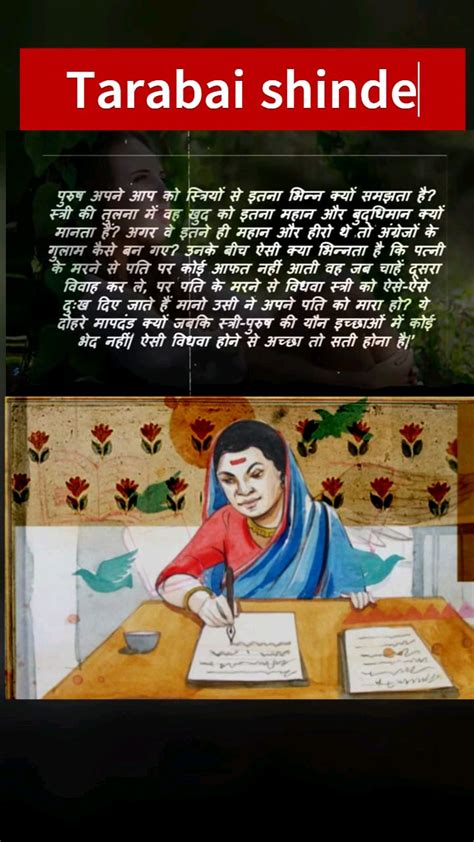 Tarabai shinde
पुरुष अपने आप को स्त्रियों से इतना भिन्न क्यों समझता है?
स्त्री की तुलना में वह खुद को इतना महान और बुद्धिमान क्यों
मानता है? अगर वे इतने ही महान और हीरो थे तो अंग्रेजों के
गुलाम कैसे बन गए? उनके बीच ऐसी क्या भिन्नता है कि पत्नी
के मरने से पति पर कोई आफत नहीं आती वह जब चाहें दूसरा
विवाह कर ले, पर पति के मरने से विधवा स्त्री को ऐसे-ऐसे
दुःख दिए जाते हैं मानो उसी ने अपने पति को मारा हो? ये
दोहरे मापदंड क्यों जबकि स्त्री-पुरुष की यौन इच्छाओं में कोई
भेद नहीं| ऐसी विधवा होने से अच्छा तो सती होना है|'